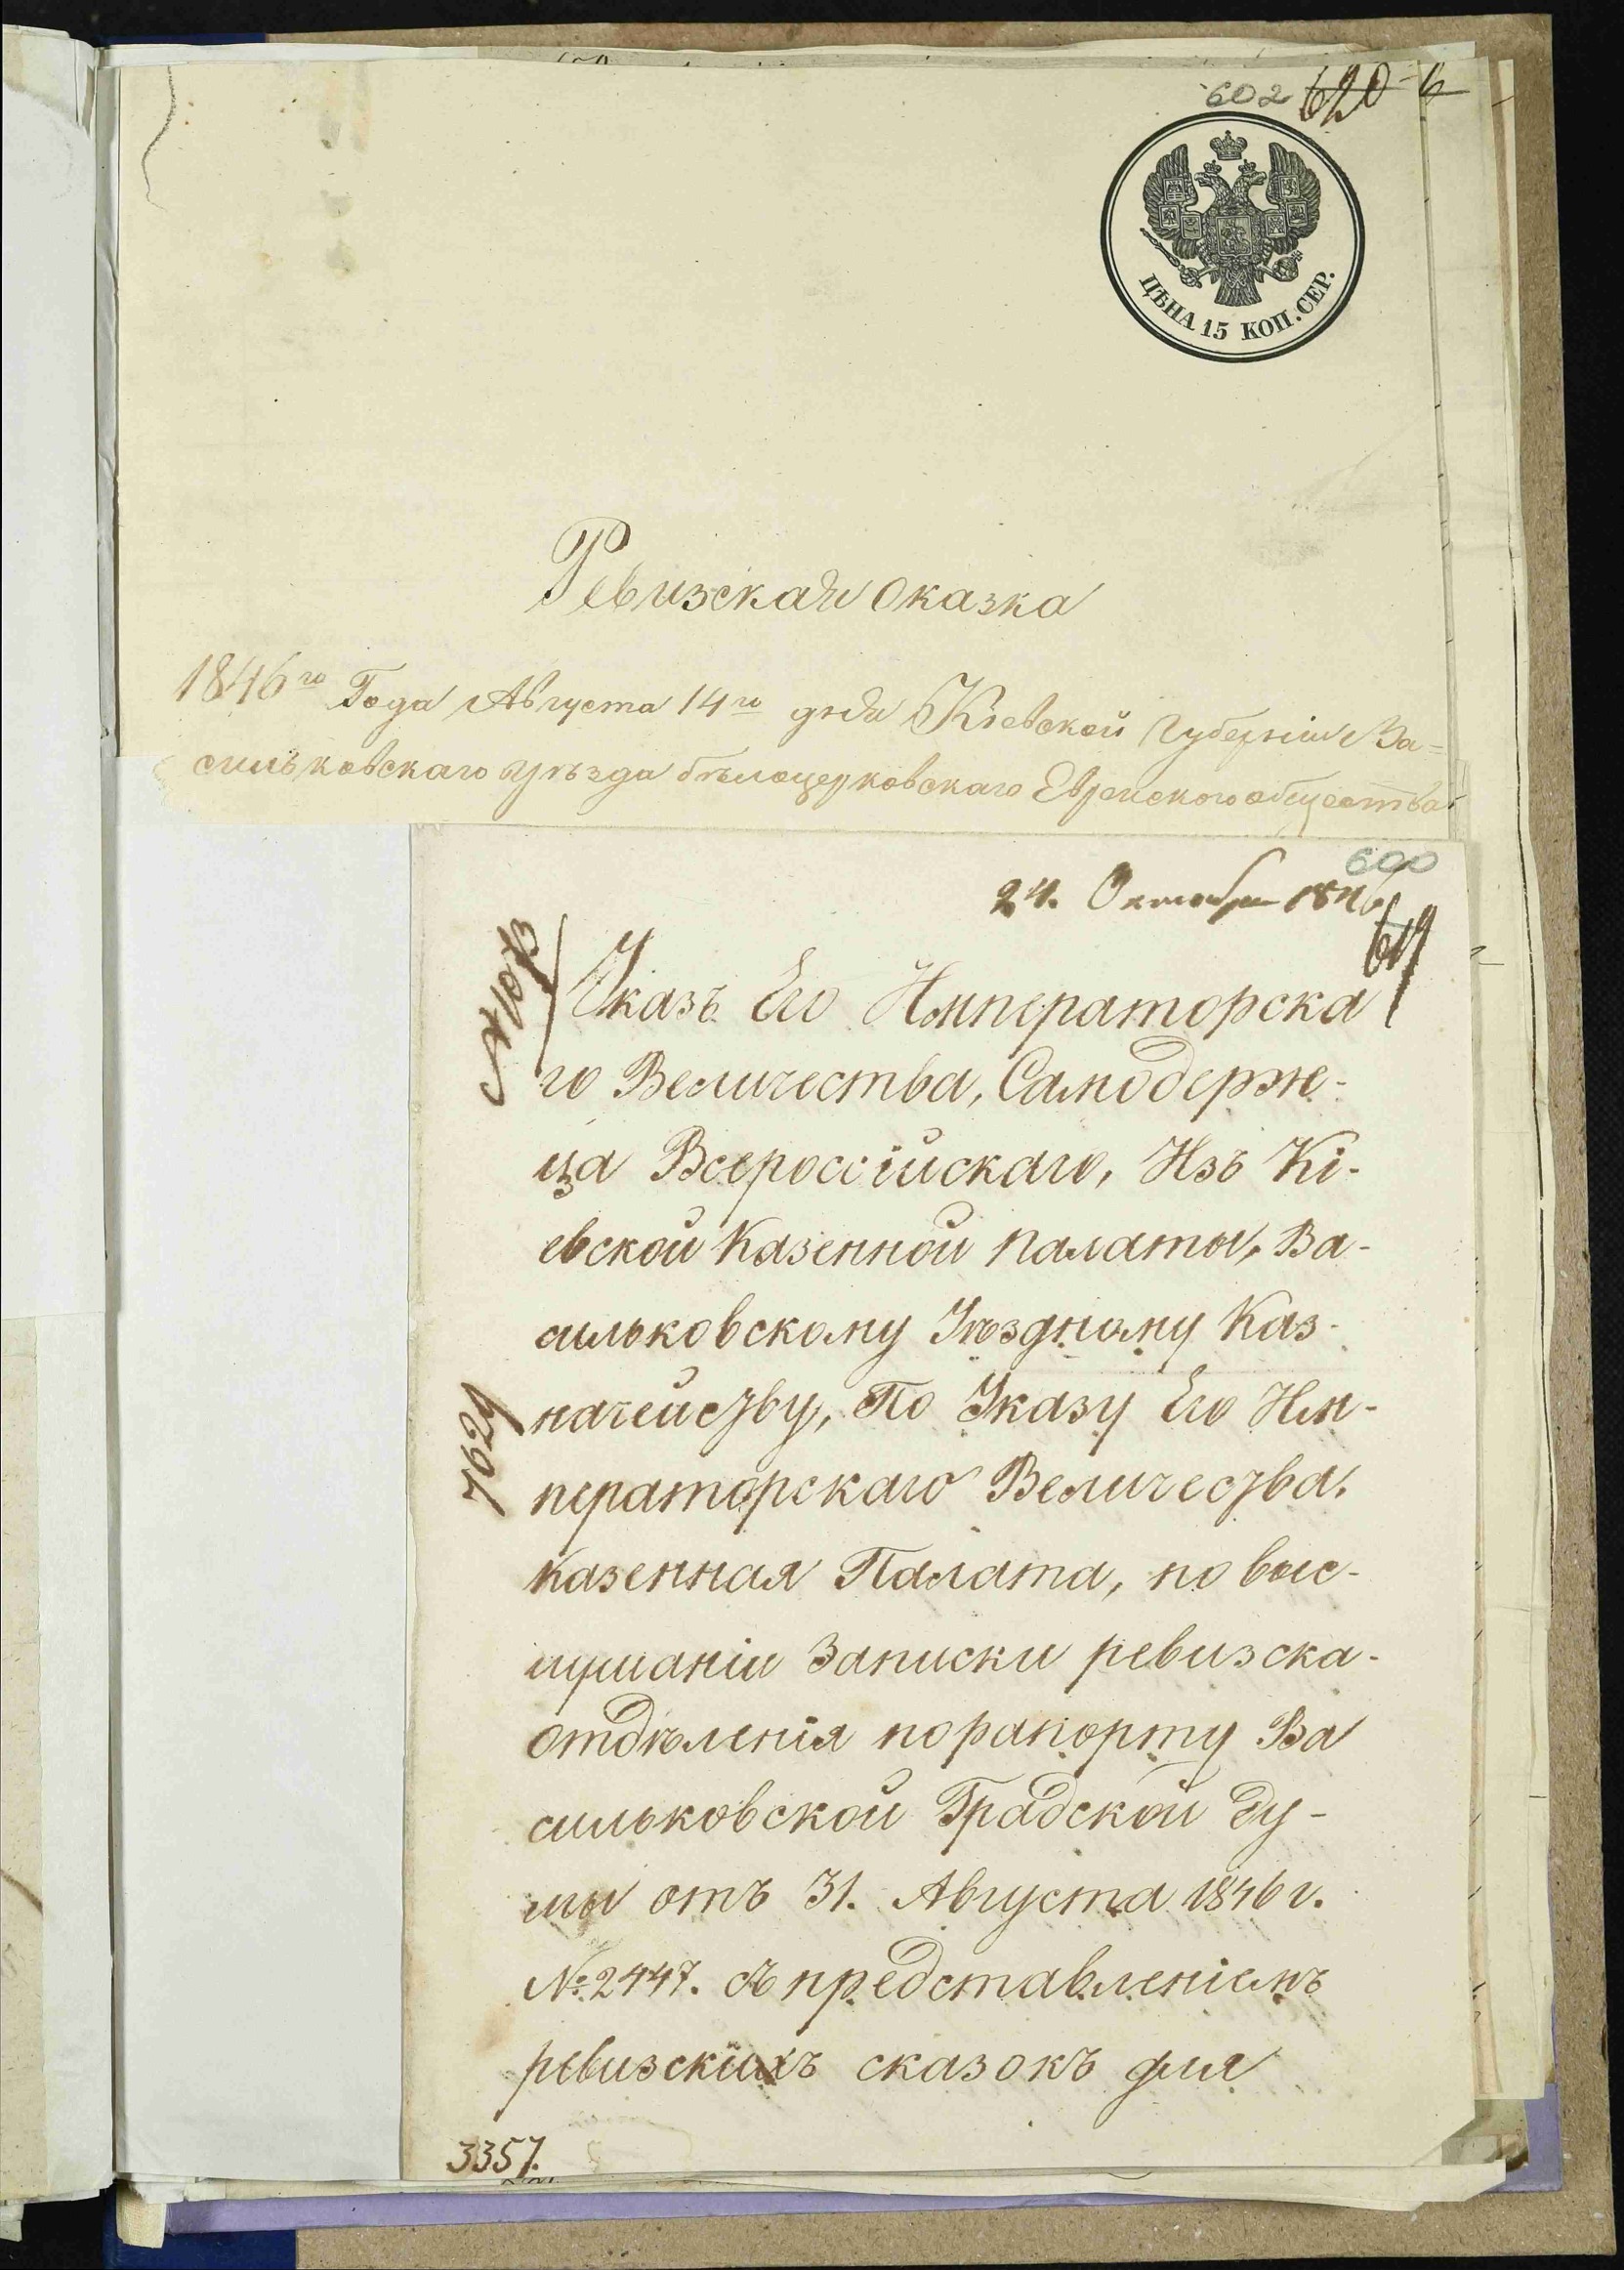 602 620
ЦѢНА 15 КОП. СЕР.
Ревизская сказка
1846го Года Августа 14го дня Кіевской Губерніи Ва=
сильковскаго уѣзда бѣлоцерковскаго Еврейского общества
600
24. Октября 1846
619
Указъ Его Императорска
го Величества, Самодерж-
ца Всероссійскаго, Изъ Кі-
евской Казенной палаты, Ва-
сильковскому Уѣздному Каз-
начейству, По Указу Его Им-
ператорскаго Величества,
7624
казенная Палата, по выс-
лушаніи Записки ревизска-
отдѣленія по рапорту Ва
сильковской Градской Ду-
мы отъ 31. Августа 1846 г.
№ 2447. съ представленіемъ
ревизскихъ сказокъ для
3357.